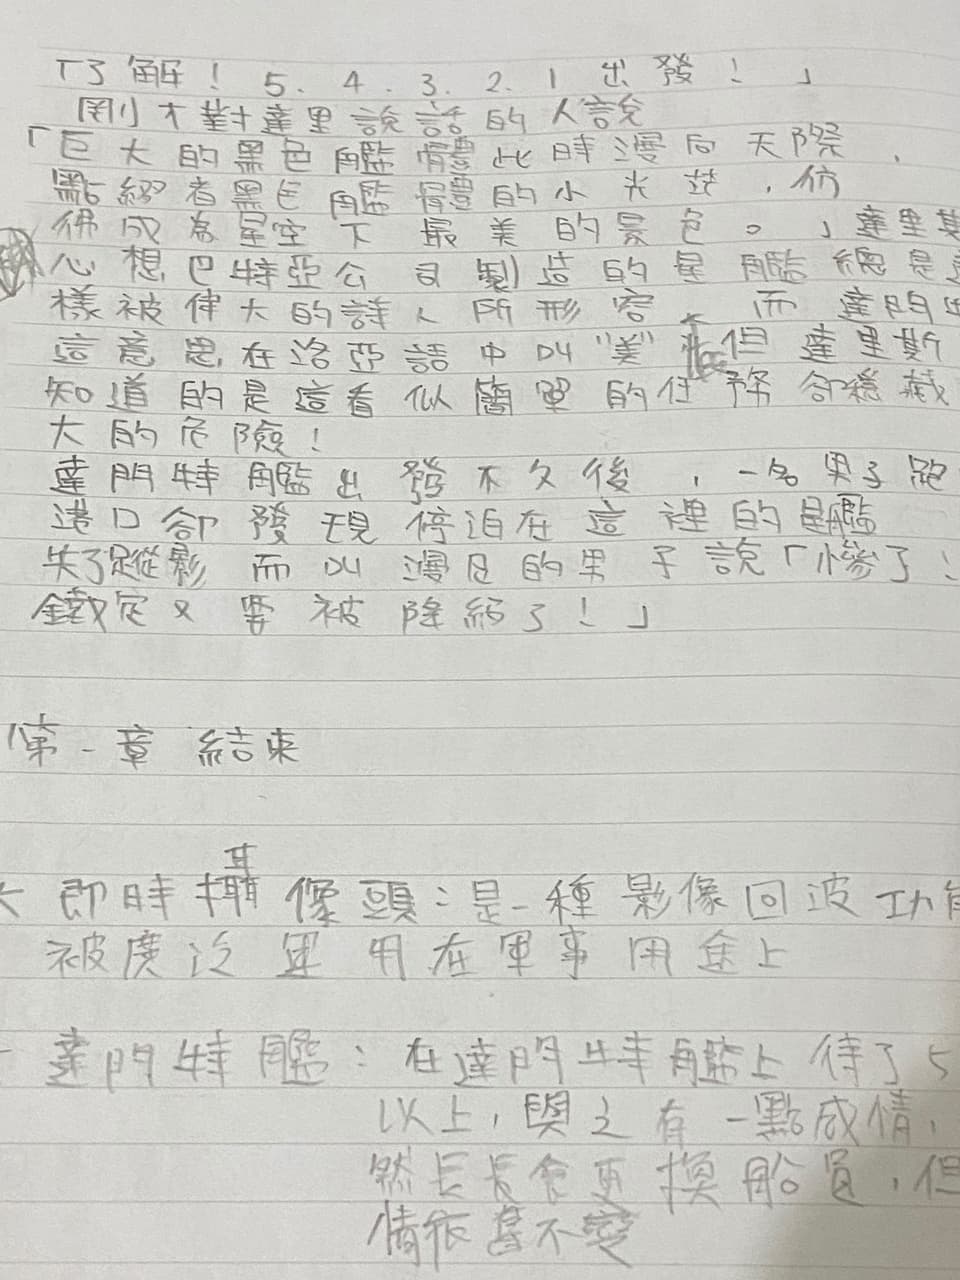 「了解！5.4.3.2.1出發！」
剛才對達里說話的人說
「巨大的黑色艦體此時漫向天際，
點綴著黑色艦體的小光芒，彷
彿成為星空下最美的景色。」達里斯
心想，巴特亞公司製造的星艦總是這
樣被偉大的詩人所形容，而達門
這意思，在洛亞語中叫"美"，但達里斯
知道的是這看似簡單的任務卻隱藏
大的危險！
達門特艦出發不久後，一名男子跑
港口卻發現停泊在這裡的星艦
失了蹤影而叫漫月的男子說「慘了！
鐵定又要被降級了！」
第一章 結束
即時攝像頭：是一種影像回波功能
被廣泛運用在軍事用途上
達門特艦：在達門特艦上待了5
以上，與之有一點感情，
然長長會更換船員，但
情依舊不變